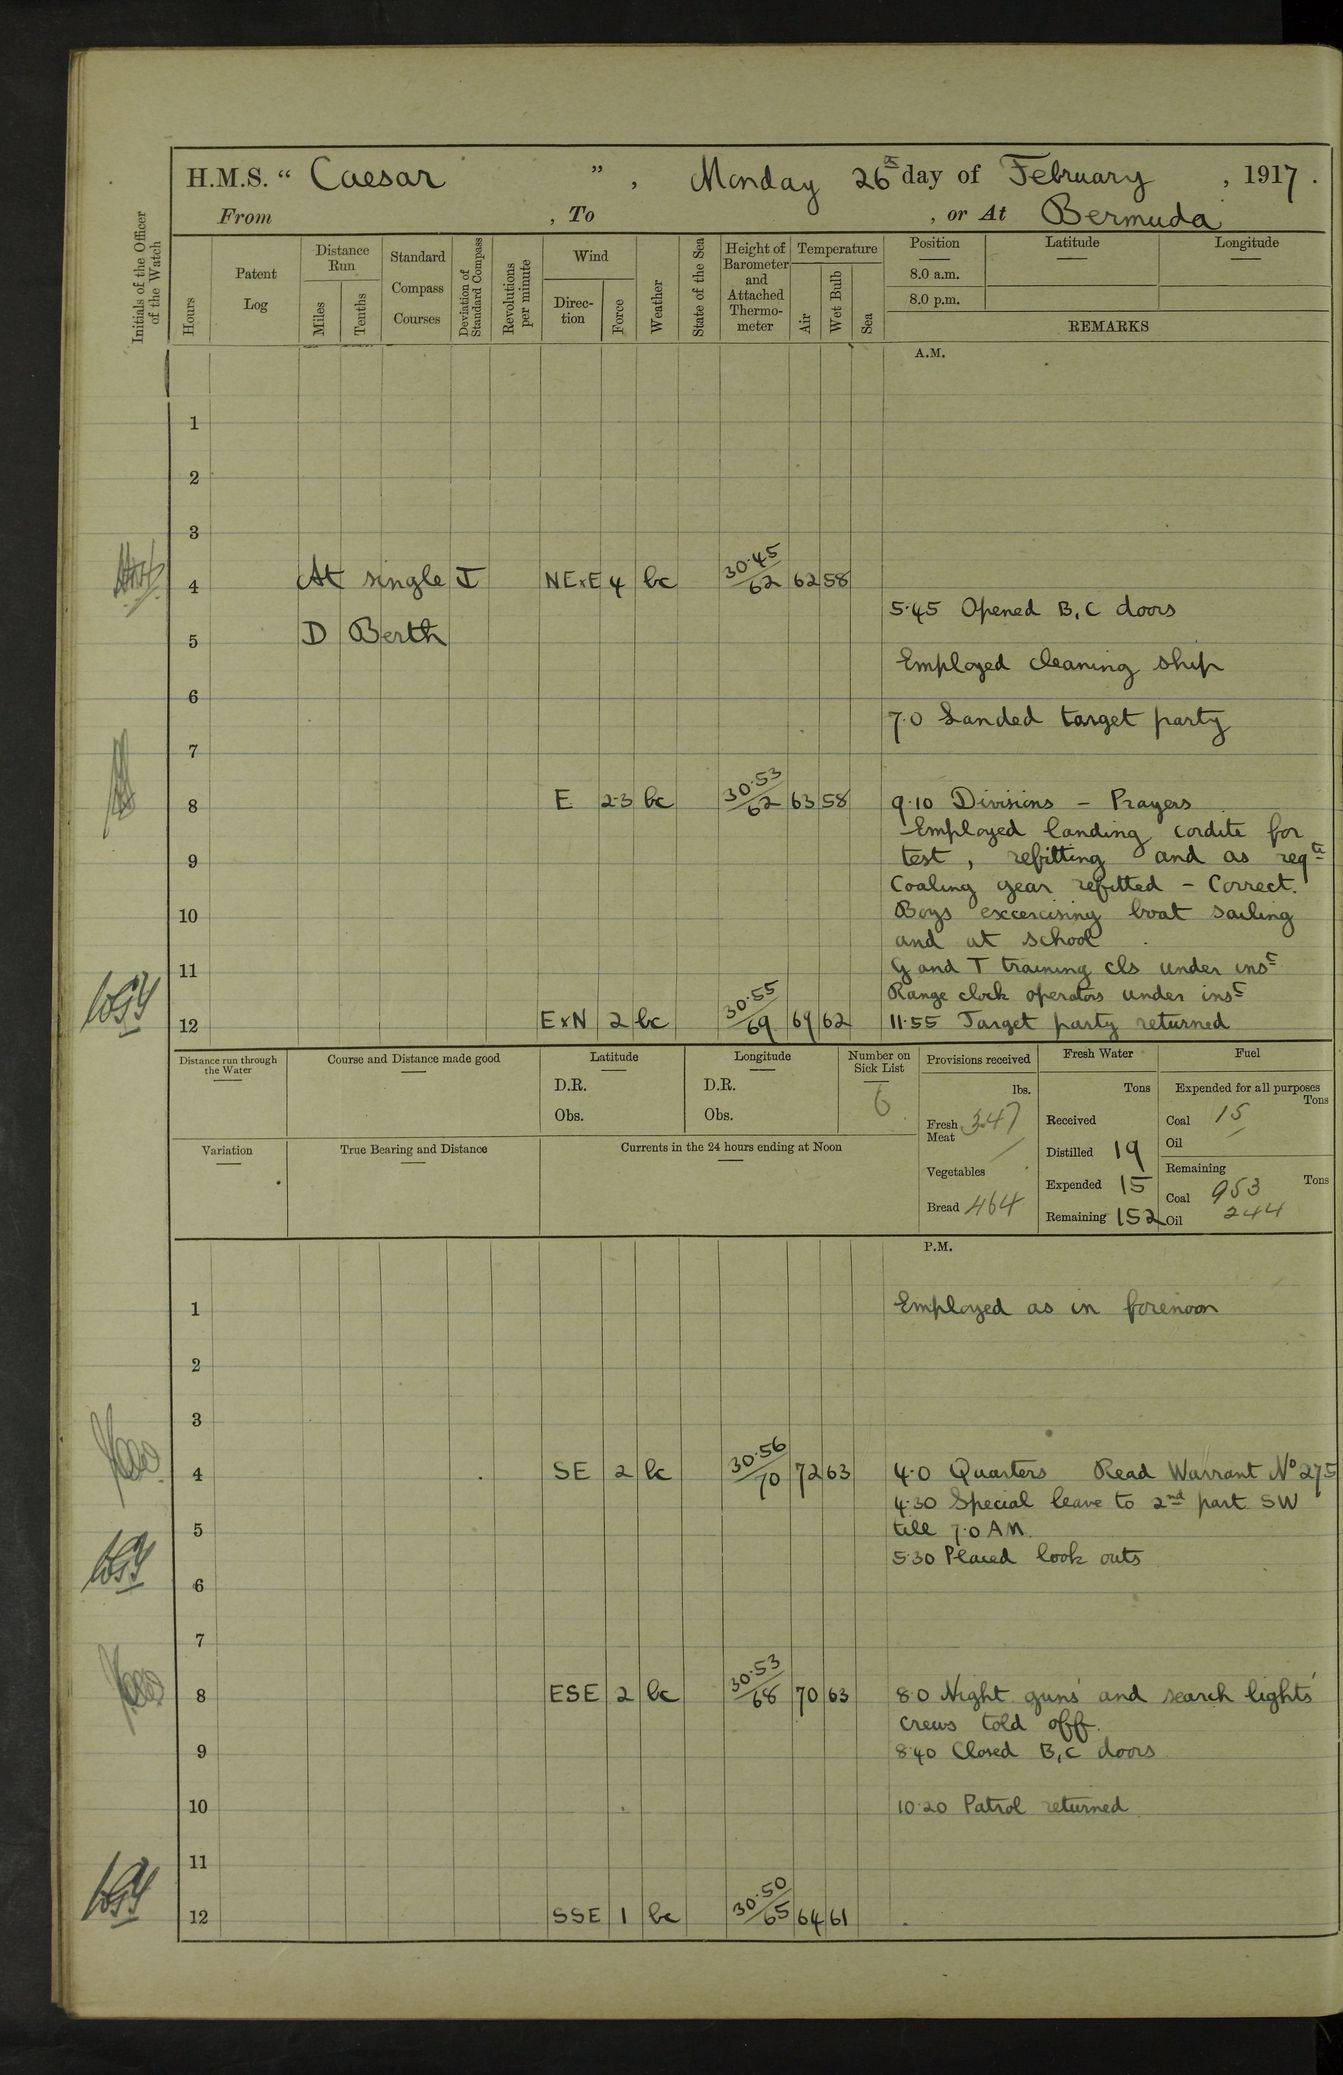 H.M.S. “ Caesar ” , Monday 26th day of February , 1917 .
From , To , or At Bermuda
Initials of the Officer of the Watch
Hours
Patent Log
Distance Run
Miles
Tenths
Standard Compass Courses
Deviation of Standard Compass
Revolutions per minute
Wind
Direc-tion
Force
Weather
State of the Sea
Height of Barometer and Attached Thermo-meter
Temperature
Air
Wet Bulb
Sea
Position Latitude Longitude
8.0 a.m.
8.0 p.m.
REMARKS
A.M.
1
2
3
4 At single I NExE 4 bc 30.45/62 62 58
5.45 Opened B,C doors
5 D Berth
Employed cleaning ship
6
7.0 Landed target party
7
8 E 2-3 bc 30.53/62 63 58 9.10 Divisions – Prayers
Employed landing cordite for
9 test , refitting and as reqte
Coaling gear refitted – Correct.
10 Boys excercising boat sailing
and at school
11 G and T training cls under inst
Range clock operators under inst
12 ExN 2 bc 30.55/69 69 62 11.55 Target party returned
Distance run through the Water
Course and Distance made good
Latitude
D.R.
Obs.
Longitude
D.R.
Obs.
Number on Sick List
6
Provisions received
lbs.
Fresh Meat 347
Vegetables
Bread 464
Fresh Water
Tons
Received
Distilled 19
Expended 15
Remaining 152
Fuel
Expended for all purposes
Tons
Coal 15
Oil –
Remaining
Tons
Coal 953
Oil 244
Variation
True Bearing and Distance
Currents in the 24 hours ending at Noon
P.M.
1 Employed as in forenoon
2
3
4 SE 2 bc 30.56/70 72 63 4.0 Quarters Read Warrant No 275
4.30 Special leave to 2nd part SW
5 till 7.0 AM.
5.30 Placed look outs
6
7
8 ESE 2 bc 30.53/68 70 63 8.0 Night guns' and search lights'
crews told off.
9 8.40 Closed B,C doors
10 10.20 Patrol returned
11
12 SSE 1 bc 30.50/65 64 61